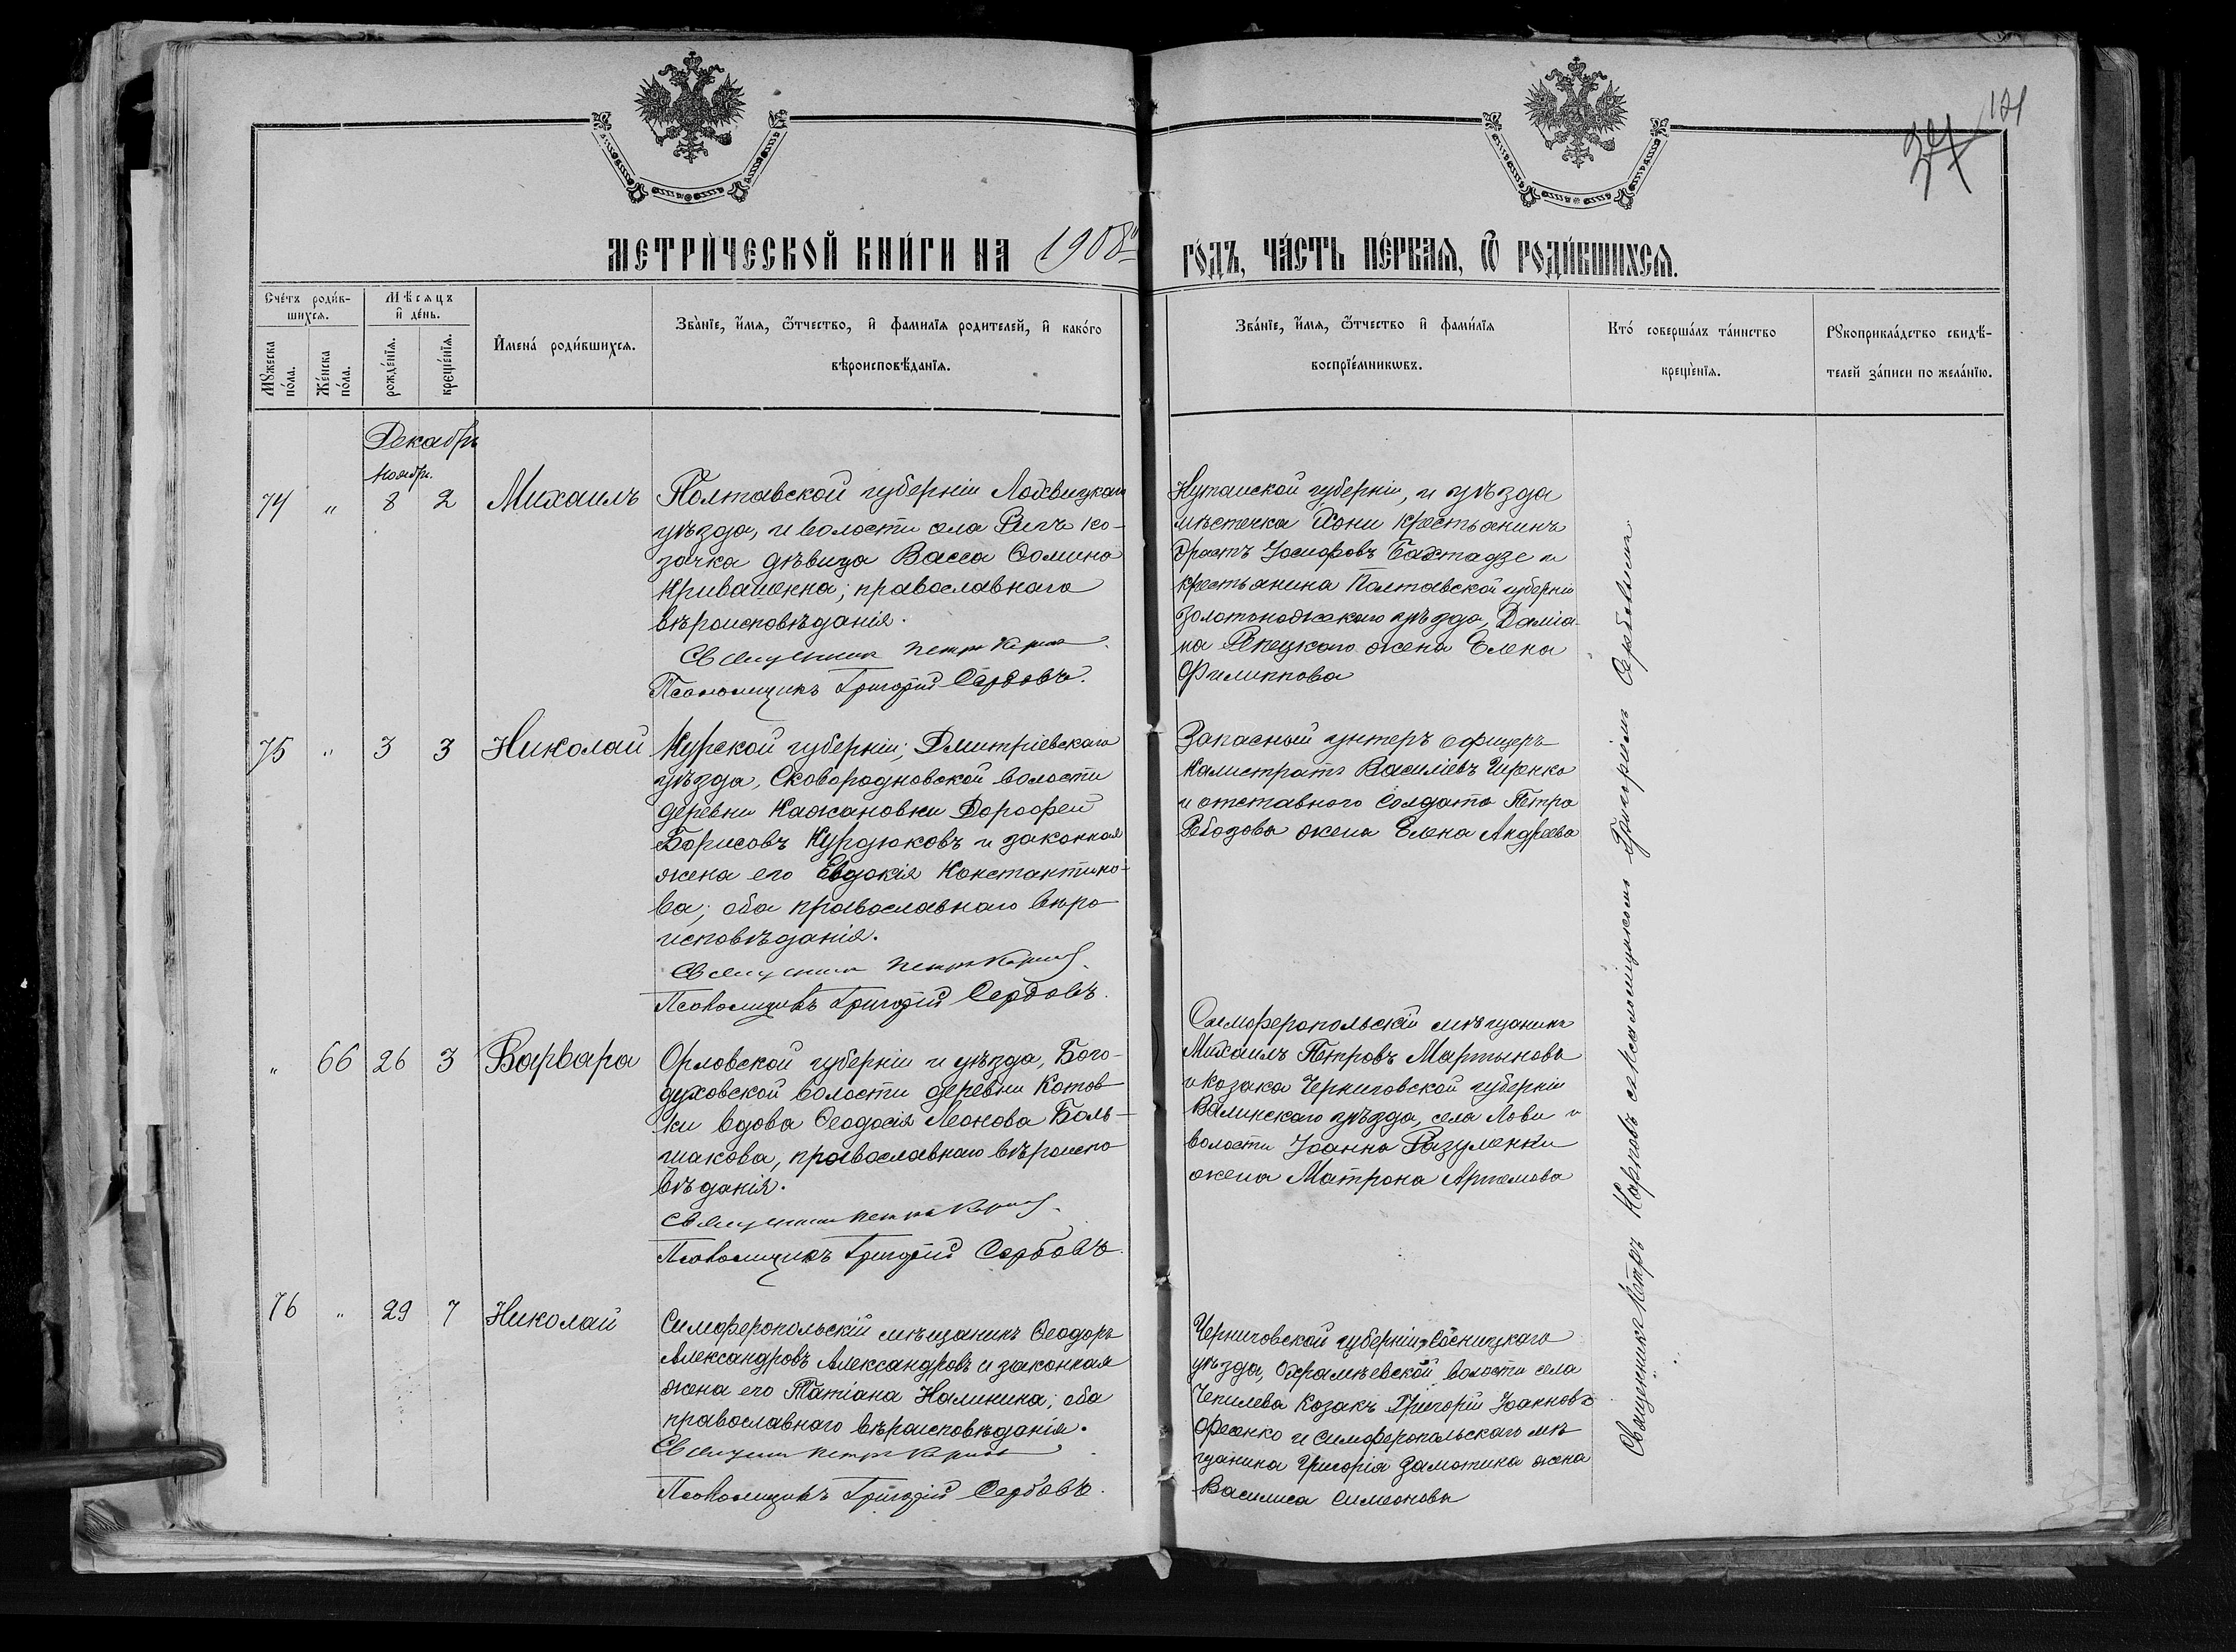 121
МЕТРИ́ЧЕСКОЙ КНИ́ГИ НА 1908й ГО́ДЪ, ЧА́СТЬ ПЕ́РВАЯ, Ѿ РОДИ́ВШИХСЯ.
Сче́тъ роди́в-
шихся.
Мѣсяцъ
и де́нь.
Мꙋжеска
по́ла.
Же́нска
по́ла.
рожде́нїя.
креще́нїя.
Имена́ роди́вшихся.
Зва́нїе, и́мя, ѻ́тчество, и фамилїя родителей, и како́го
вѣроисповѣ́данїя.
Зва́нїе, и́мя, ѻ́тчество и фами́лїя
воспрїе́мникѡвъ.
Кто́ соверша́лъ та́инство
креще́нїя.
Рꙋкоприкла́дство свидѣ́-
телей за́писи по жела́нїю.
Декабрь
Ноябр.
74 " 8 2 Михаилъ
Полтавской губерніи Лохвицкаго
уѣзда, и волости села Ригъ ко-
зачка дѣвица Васса Ѳомина
Кривашенна; православнаго
вѣроисповѣданія.
Священник Петръ Карпов
Псаломщикъ Григорій Сербовъ.
Кутаиской губерніи, и уѣзда
мѣстечка Хони крестьянинъ
Эрастъ Іосифовъ Бахтадзе и
крестьянина Полтавской губерніи
Золотоношскаго уѣзда, Даміа-
на Рѣпецкаго жена Елена
Филиппова
75 " 3 3 Николай
Курской губерніи; Дмитріевскаго
уѣзда, Сковородновской волости
деревни Кажановки Дороѳей
Борисовъ Курдюковъ и законная
жена его Евдокія Константино-
ва; оба православнаго вѣро-
исповѣданія.
Священник Петръ Карпов
Псаломщикъ Григорій Сербовъ.
Запасный унтеръ офицеръ
Калистратъ Василіевъ Ширенко
и отставного солдата Петра
Жена Елена Андреева
" 66 26 3 Варвара
Орловской губерніи и уѣзда, Бого-
духовской волости деревни Котов-
ки вдова Ѳеодосія Леонова Боль-
шакова, православнаго вѣроиспо-
вѣданія.
Священник Петръ Карпов
Псаломщикъ Григорій Сербовъ.
Симферопольскій мѣщанинъ
Михаилъ Петровъ Мартыновъ
и козака Черниговской губерніи
уѣзда, села Лови и
волости Іоанна Разуменки
жена Матрона Артемова
76 " 29 7 Николай
Симферопольскій мѣщанинъ Ѳеодоръ
Александровъ Александровъ и законная
жена его Татіана Калинина; оба
православнаго вѣроисповѣданія.
Священник Петръ Карпов
Псаломщикъ Григорій Сербовъ.
Черниговской губерніи, Сосницкаго
уѣзда, Охрамѣевской волости села
Чепилева козакъ Григорій Іоанновъ
Фесенко и Симферопольскаго мѣ-
щанина Григорія Замотина жена
Василиса Симеонова
Священникъ Петръ Карповъ съ псаломщикомъ Григоріемъ Сербовымъ.